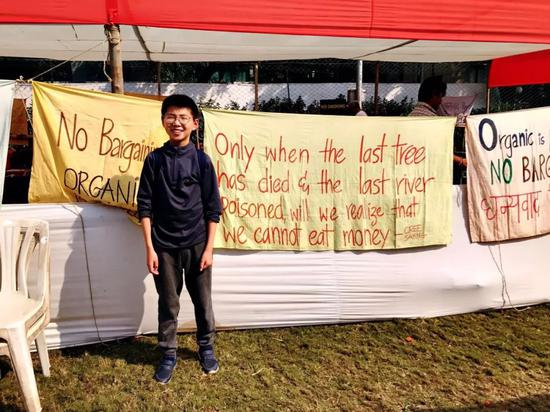 No Bargain
ORGANI
Only when the last tree
has died & the last river
poisoned, will we realize that
we cannot eat money -
CREE
Organic is
NO BARG
धन्यवाद